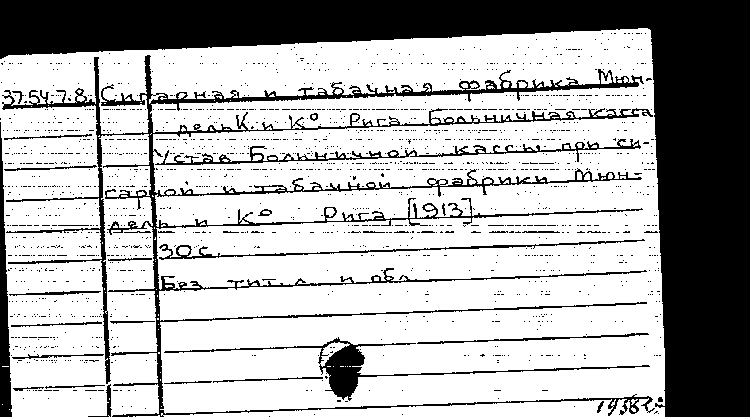 37.54.7.8. Сигарная и табачная фабрика Мюн-
дель К. и К° Рига. Больничная касса
Устав Больничной кассы при си-
гарной и табачной фабрики Мюн-
дель и К° Рига, [1913].
30 с.
Без тит. л. и обл.
1958 г.